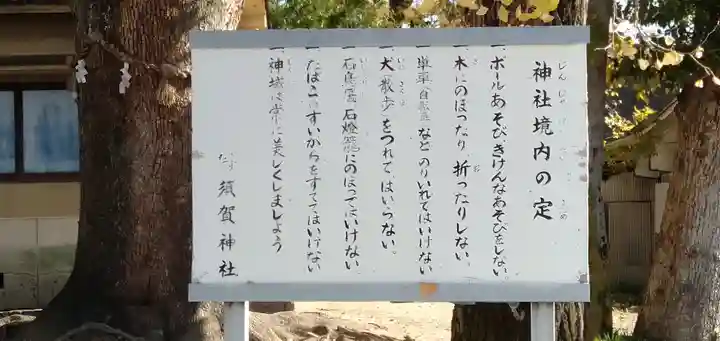 神社境内の定
一、ボールあそび、きけんなあそびをしない。
一、木にのぼったり、折ったりしない。
一、単車、自転車などのりいれてはいけない
一、犬の散歩、をつれて、はいらない。
一、石鳥居、石燈籠にのぼってはいけない。
一、たばこのすいがらをすててはいけない
一、神域は常に美しくしましょう
須賀神社